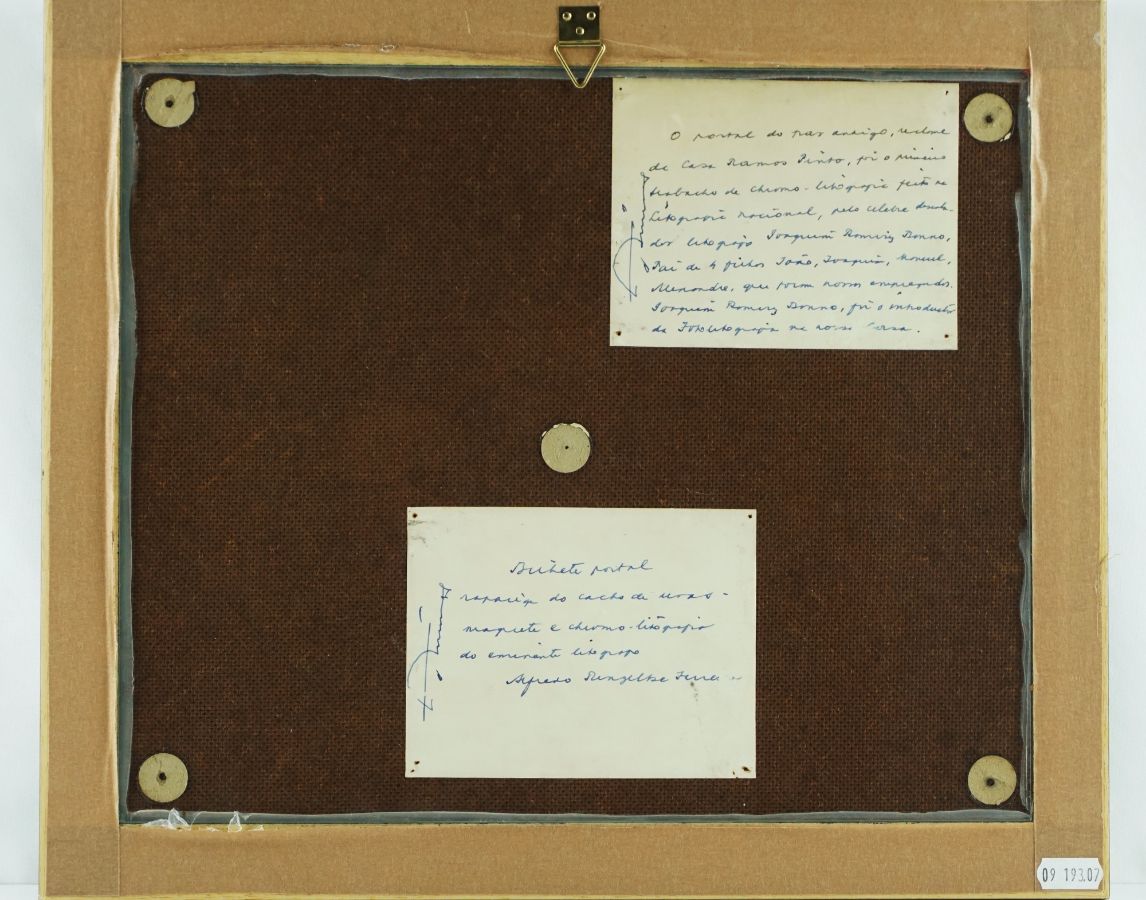 O postal do traz antigo, reclame
da Casa Ramos Pinto, foi o primeiro
trabalho de chromo-litografia feito na
Litografia Nacional, pelo celebre desenha-
dor litografo Joaquim Romeiz Bonno,
Pai de 4 filhos João, Joaquim, Manuel,
Menandro, que foram nossos empregados.
Joaquim Bonno, foi o introductor
da Fotolitografia na nossa Casa.
Bilhete postal
rapariga do cacho de uvas -
maquete e chromo-litografia
do eminente litografo
Alfredo
09 193.07